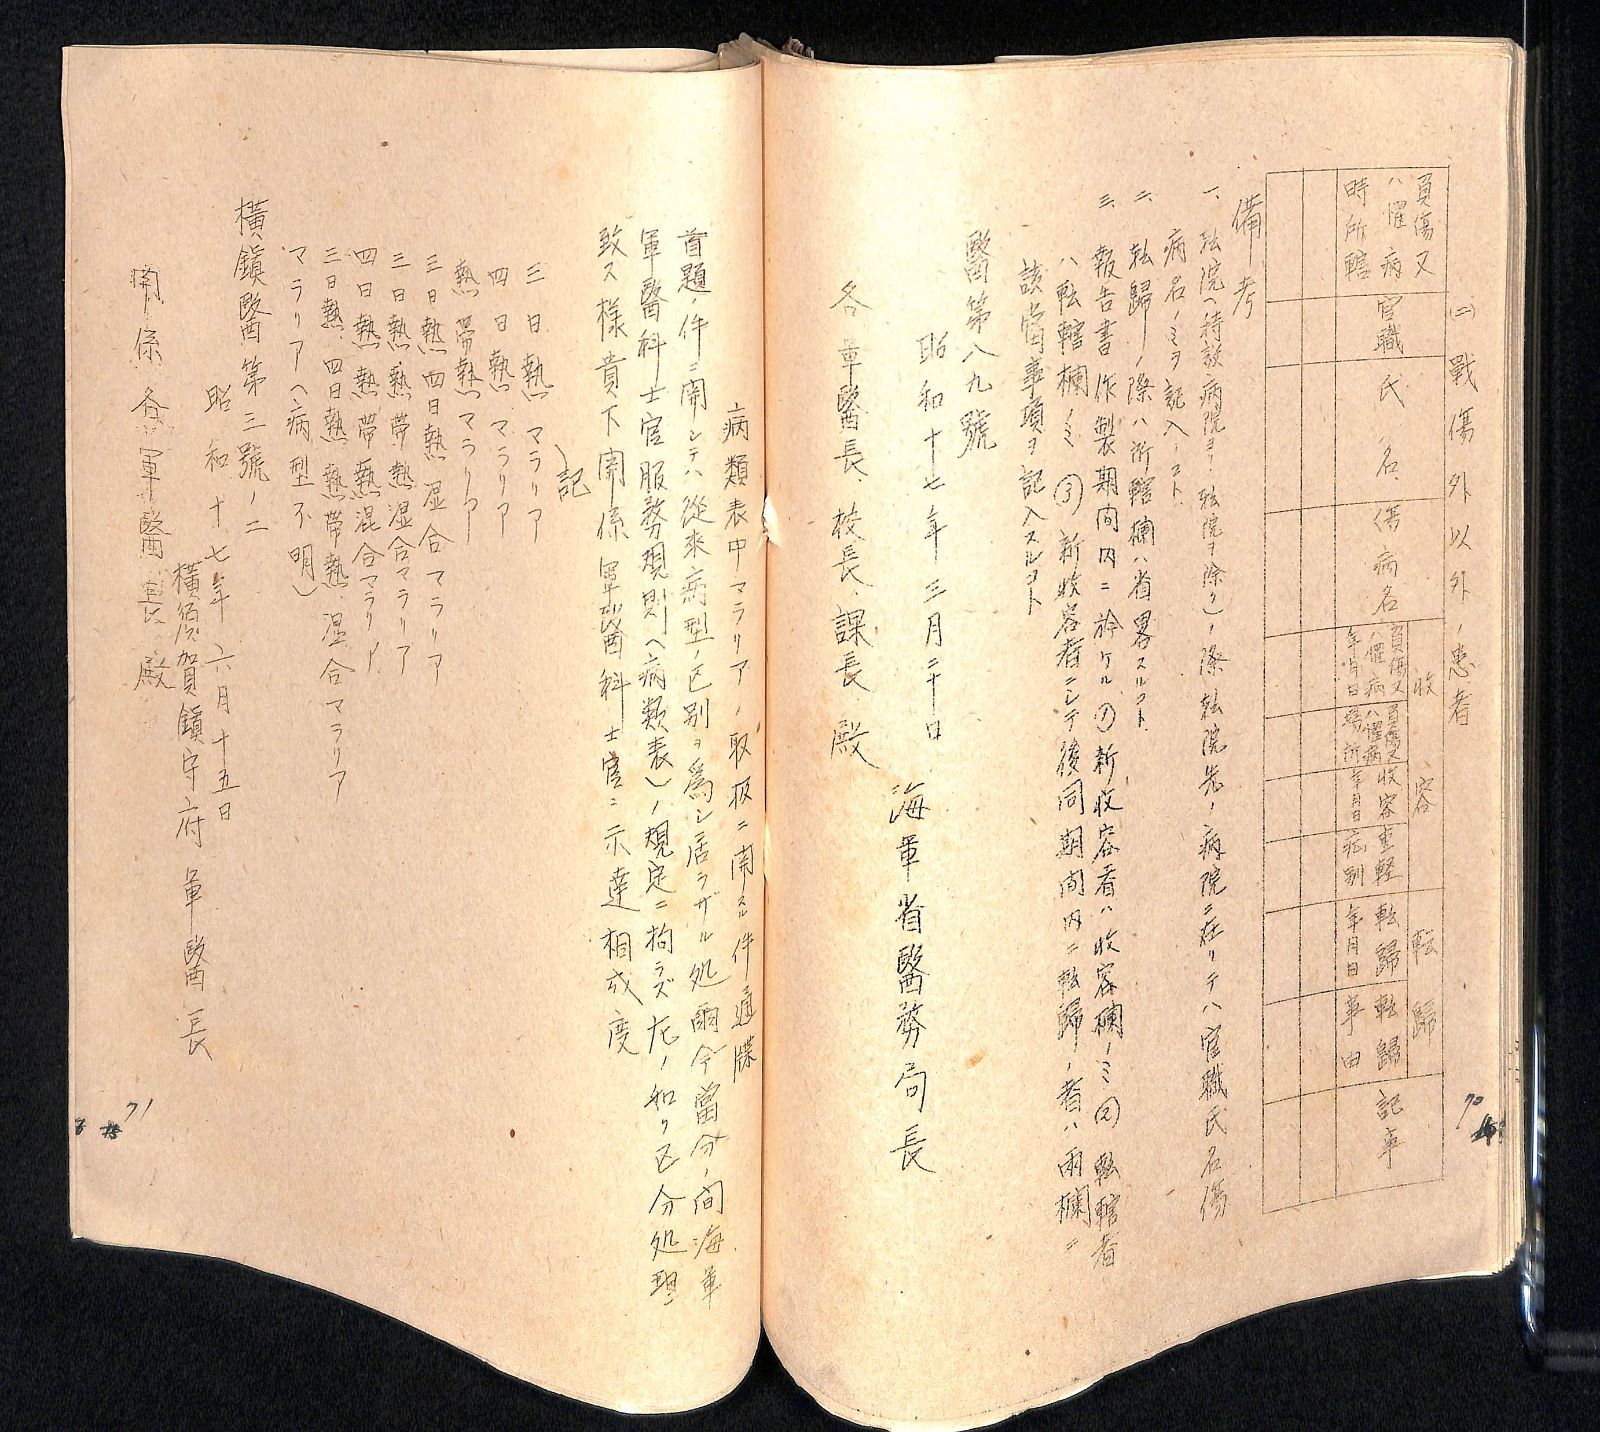 (二)戰傷外以外ノ患者
負傷又ハ罹病時所轄
官職
氏名
傷病名
收容
負傷又ハ罹病年月日
負傷又ハ罹病場所
收容年月日
重輕症別
転歸
転歸年月日
転歸事由
記事
備考
一、転院(特設病院ヨリノ転院ヲ除ク)ノ際転院先ノ病院ニ在リテハ官職氏名傷
病名ノミヲ記入ノコト
二、転歸ノ際ハ所轄欄ハ省畧スルコト
三、報告書作製期間内ニ於ケル(1)新收容者ハ收容欄ノミ(2)転轄者
ハ転轄欄ノミ(3)新收容者ニシテ後同期間内ニ転歸ノ者ハ兩欄ニ
該當事項ヲ記入スルコト
醫第八九號
昭和十七年三月二十日
海軍省醫務局長
各軍醫長、校長、課長殿
70
病類表中マラリアノ取扱ニ関スル件通牒
首題ノ件ニ関シテハ從來病型ノ区別ヲ爲シ居ラザル処爾今當分ノ間海軍
軍醫科士官服務規則(病類表)ノ規定ニ拘ラズ左ノ如ク区分処理
致ス樣貴下関係軍醫科士官ニ示達相成度
記
三日熱マラリア
四日熱マラリア
熱帶熱マラリア
三日熱四日熱混合マラリア
三日熱熱帶熱混合マラリア
四日熱熱帶熱混合マラリア
三日熱、四日熱、熱帶熱、混合マラリア
マラリア(病型不明)
橫鎭醫第三號ノ二
昭和十七年六月十五日
橫須賀鎭守府軍醫長
関係各軍醫長殿
71